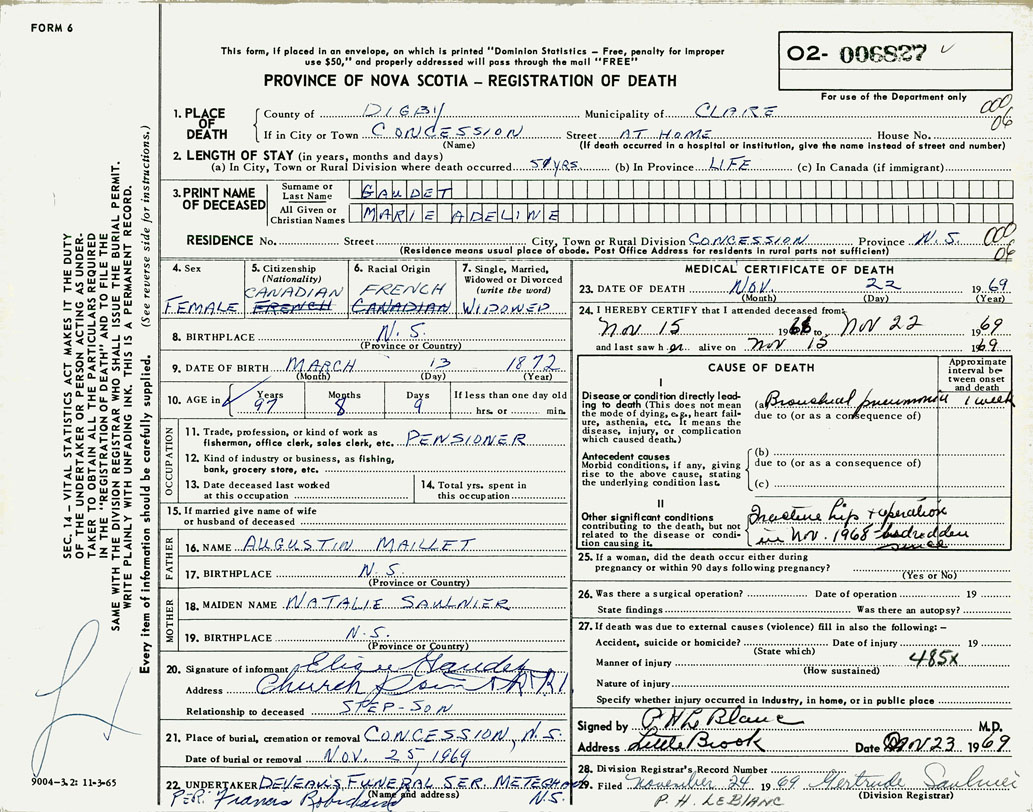 FORM 6
This form, if placed in an envelope, on which is printed "Dominion Statistics – Free, penalty for improper
use $50," and properly addressed will pass through the mail "FREE"
PROVINCE OF NOVA SCOTIA – REGISTRATION OF DEATH
02- 006827
For use of the Department only
000
06
1. PLACE OF DEATH County of DIGBY Municipality of CLARE
If in City or Town CONCESSION Street AT HOME House No.
(Name) (If death occurred in a hospital or institution, give the name instead of street and number)
2. LENGTH OF STAY (in years, months and days)
(a) In City, Town or Rural Division where death occurred 54 YRS. (b) In Province LIFE (c) In Canada (if immigrant)
3. PRINT NAME OF DECEASED Surname or Last Name GAUDET
All Given or Christian Names MARIE ADELINE
RESIDENCE No. Street City, Town or Rural Division CONCESSION Province N.S. 000
06
(Residence means usual place of abode. Post Office Address for residents in rural parts not sufficient)
4. Sex 5. Citizenship 6. Racial Origin 7. Single, Married,
(Nationality) Widowed or Divorced
(write the word)
CANADIAN FRENCH
FEMALE FRENCH CANADIAN WIDOWED
8. BIRTHPLACE N.S.
(Province or Country)
9. DATE OF BIRTH MARCH 13 1872
(Month) (Day) (Year)
10. AGE in Years Months Days If less than one day old
97 8 9 hrs. or min.
OCCUPATION
11. Trade, profession, or kind of work as
fisherman, office clerk, sales clerk, etc. PENSIONER
12. Kind of industry or business, as fishing,
bank, grocery store, etc.
13. Date deceased last worked
at this occupation
14. Total yrs. spent in
this occupation
15. If married give name of wife
or husband of deceased
FATHER
16. NAME AUGUSTIN MAILLET
17. BIRTHPLACE N.S.
(Province or Country)
MOTHER
18. MAIDEN NAME NATALIE SAULNIER
19. BIRTHPLACE N.S.
(Province or Country)
20. Signature of informant Elise Gaudet
Address Church Point RR1
Relationship to deceased STEP-SON
21. Place of burial, cremation or removal CONCESSION, N.S.
Date of burial or removal NOV. 25, 1969
22. UNDERTAKER DEVEAU'S FUNERAL SER. METEGHAN
(Name and address) N.S.
PER: Francis
MEDICAL CERTIFICATE OF DEATH
23. DATE OF DEATH NOV. 22 1969
(Month) (Day) (Year)
24. I HEREBY CERTIFY that I attended deceased from:
Nov 15 1968 to Nov 22 1969
and last saw her alive on Nov 15 1969
CAUSE OF DEATH
Approximate interval between onset and death
I
Disease or condition directly lead-
ing to death (This does not mean
the mode of dying, e.g., heart fail-
ure, asthenia, etc. It means the
disease, injury, or complication
which caused death.)
(a) Bronchial pneumonia 1 week
due to (or as a consequence of)
Antecedent causes
Morbid conditions, if any, giving
rise to the above cause, stating
the underlying condition last.
(b)
due to (or as a consequence of)
(c)
II
Other significant conditions
contributing to the death, but not
related to the disease or condi-
tion causing it.
Fracture hip & operation
in Nov. 1968 bedridden
since
25. If a woman, did the death occur either during
pregnancy or within 90 days following pregnancy?
(Yes or No)
26. Was there a surgical operation? Date of operation 19
State findings Was there an autopsy?
27. If death was due to external causes (violence) fill in also the following:–
Accident, suicide or homicide? Date of injury 19
(State which)
Manner of injury 485X
(How sustained)
Nature of injury
Specify whether injury occurred in industry, in home, or in public place
Signed by P H LeBlanc M.D.
Address Little Brook Date Nov 23 1969
28. Division Registrar's Record Number
29. Filed November 24 1969 Gertrude Saulnier
(Division Registrar)
P. H. LEBLANC
SEC. 14 – VITAL STATISTICS ACT MAKES IT THE DUTY
OF THE UNDERTAKER OR PERSON ACTING AS UNDER-
TAKER TO OBTAIN ALL THE PARTICULARS REQUIRED
IN THE "REGISTRATION OF DEATH" AND TO FILE THE
SAME WITH THE DIVISION REGISTRAR WHO SHALL ISSUE THE BURIAL PERMIT.
WRITE PLAINLY WITH UNFADING INK. THIS IS A PERMANENT RECORD.
Every item of information should be carefully supplied. (See reverse side for instructions.)
9004-3.2: 11-3-65